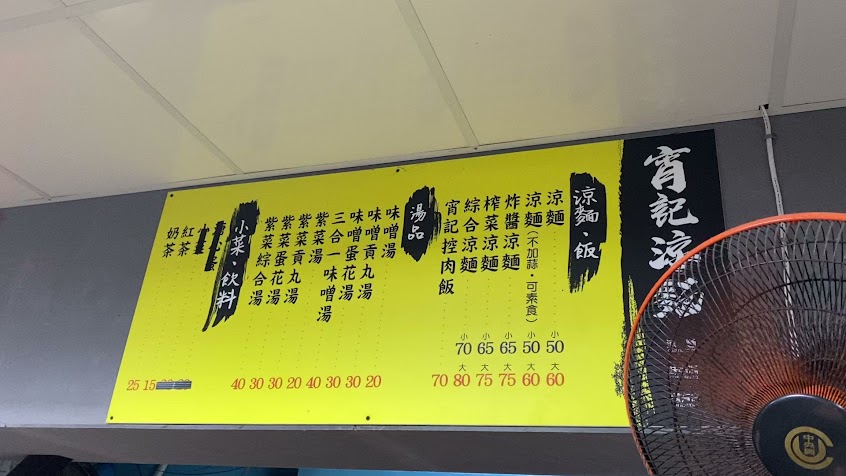 宵記涼
涼麵·飯
涼麵 小50 大60
涼麵(不加蒜·可素食) 小50 大60
炸醬涼麵 小65 大75
榨菜涼麵 小65 大75
綜合涼麵 小70 大80
宵記控肉飯 70
湯品
味噌湯 20
味噌貢丸湯 30
味噌蛋花湯 30
三合一味噌湯 40
紫菜湯 20
紫菜貢丸湯 30
紫菜蛋花湯 30
紫菜綜合湯 40
小菜·飲料
紅茶 15
奶茶 25
中央牌